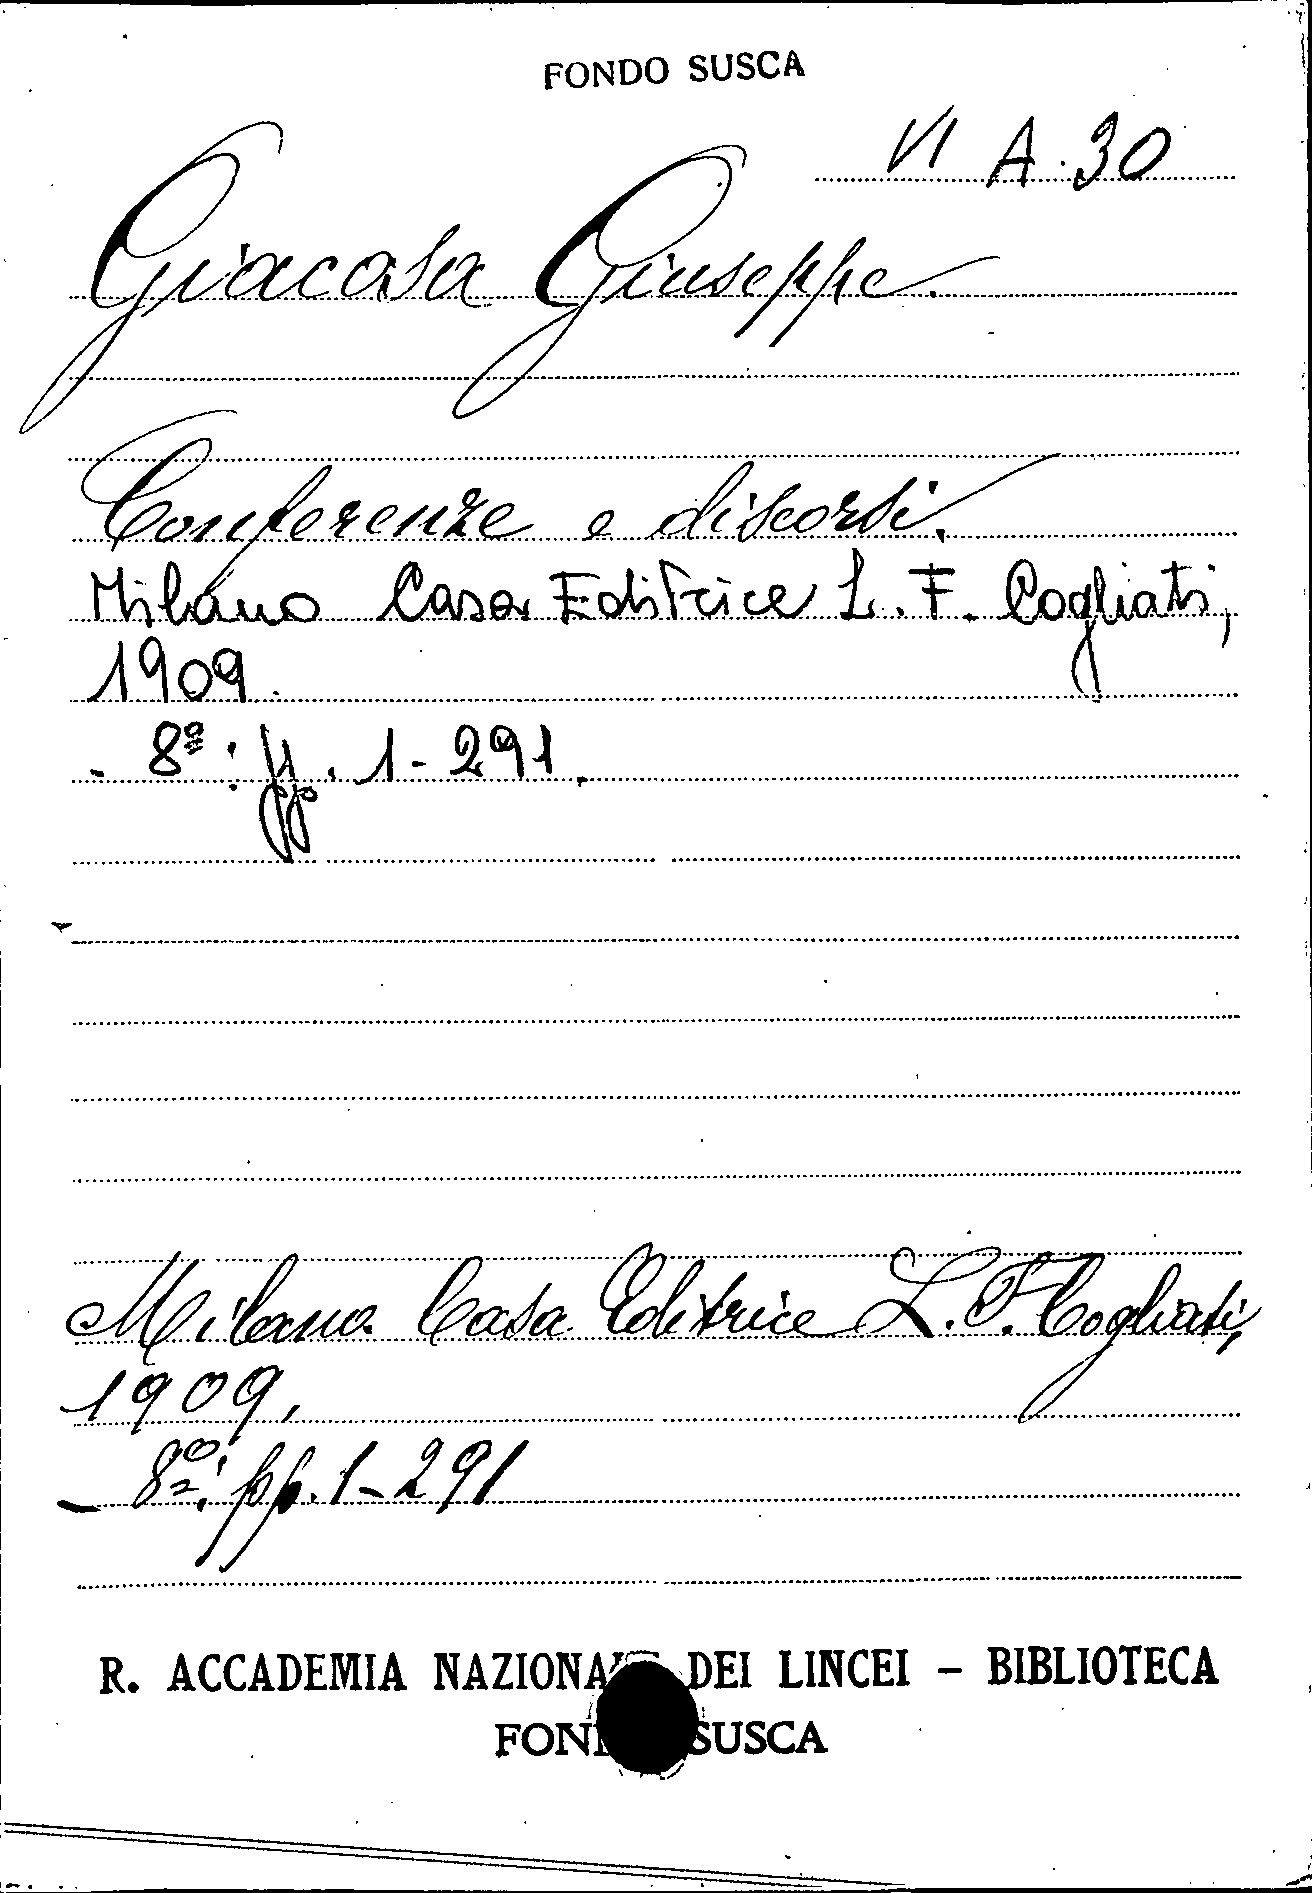 FONDO SUSCA
VI A. 30
Giacosa Giuseppe.
Conferenze e discorsi.
Milano Casa Editrice L. F. Cogliati,
1909.
- 8º: pp. 1-291.
Milano Casa Editrice L. F. Cogliati,
1909,
- 8º: pp. 1-291
R. ACCADEMIA NAZIONALE DEI LINCEI - BIBLIOTECA
FONDO SUSCA